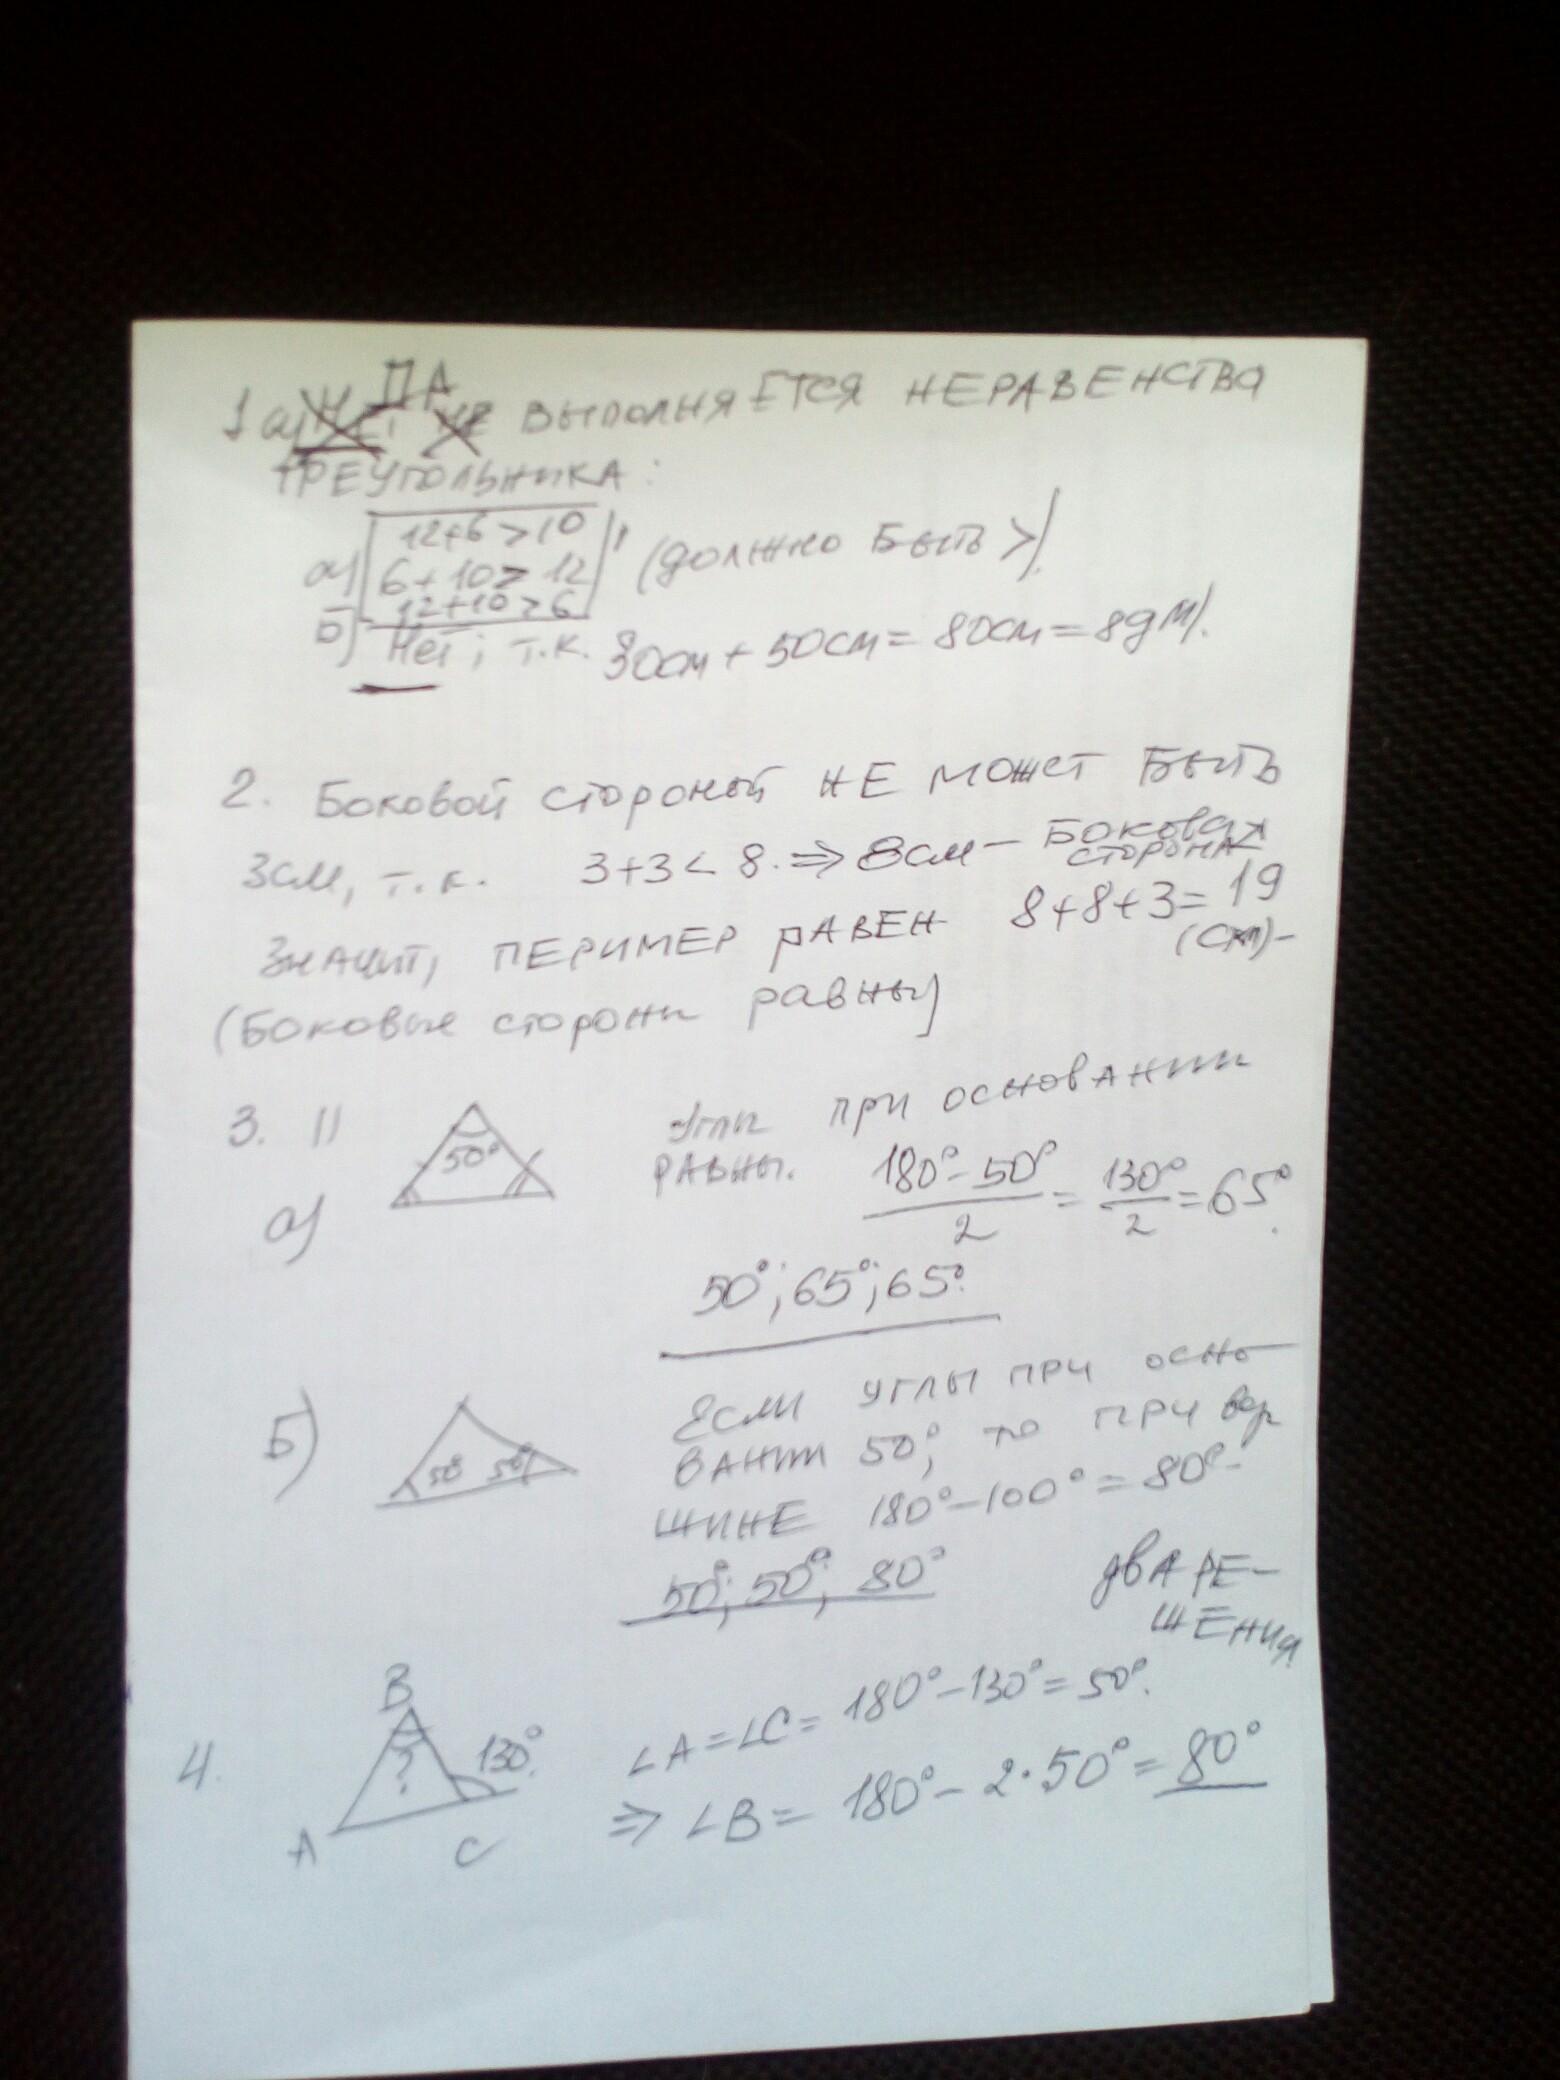 ДА
1 а) НЕТ НЕ ВЫПОЛНЯЕТСЯ НЕРАВЕНСТВА
ТРЕУГОЛЬНИКА:
12+6 > 10
а) 6+10 > 12 (ДОЛЖНО БЫТЬ >).
12+10 > 6
Б) Нет; т.к. 30см + 50см = 80см = 8дм).
2. Боковой стороной НЕ МОЖЕТ БЫТЬ
3см, т.к. 3+3 < 8. ⇒ 8см – Боковая
сторона
Значит, ПЕРИМЕР РАВЕН 8+8+3=19
(см)-
(Боковые стороны равны)
3. 11
50°
Углы при основании
РАВНЫ. (180°-50°)/2 = 130°/2 = 65°.
а)
50°; 65°; 65°.
Б)
50° 50°
Если углы при осно
вании 50°, то при вер
шине 180°-100°=80°-
50°; 50°; 80°
ДВА РЕ-
ШЕНИЯ
4.
B
? 130°.
A C
∠A=∠C= 180°-130°=50°.
⇒ ∠B= 180°-2·50°=80°